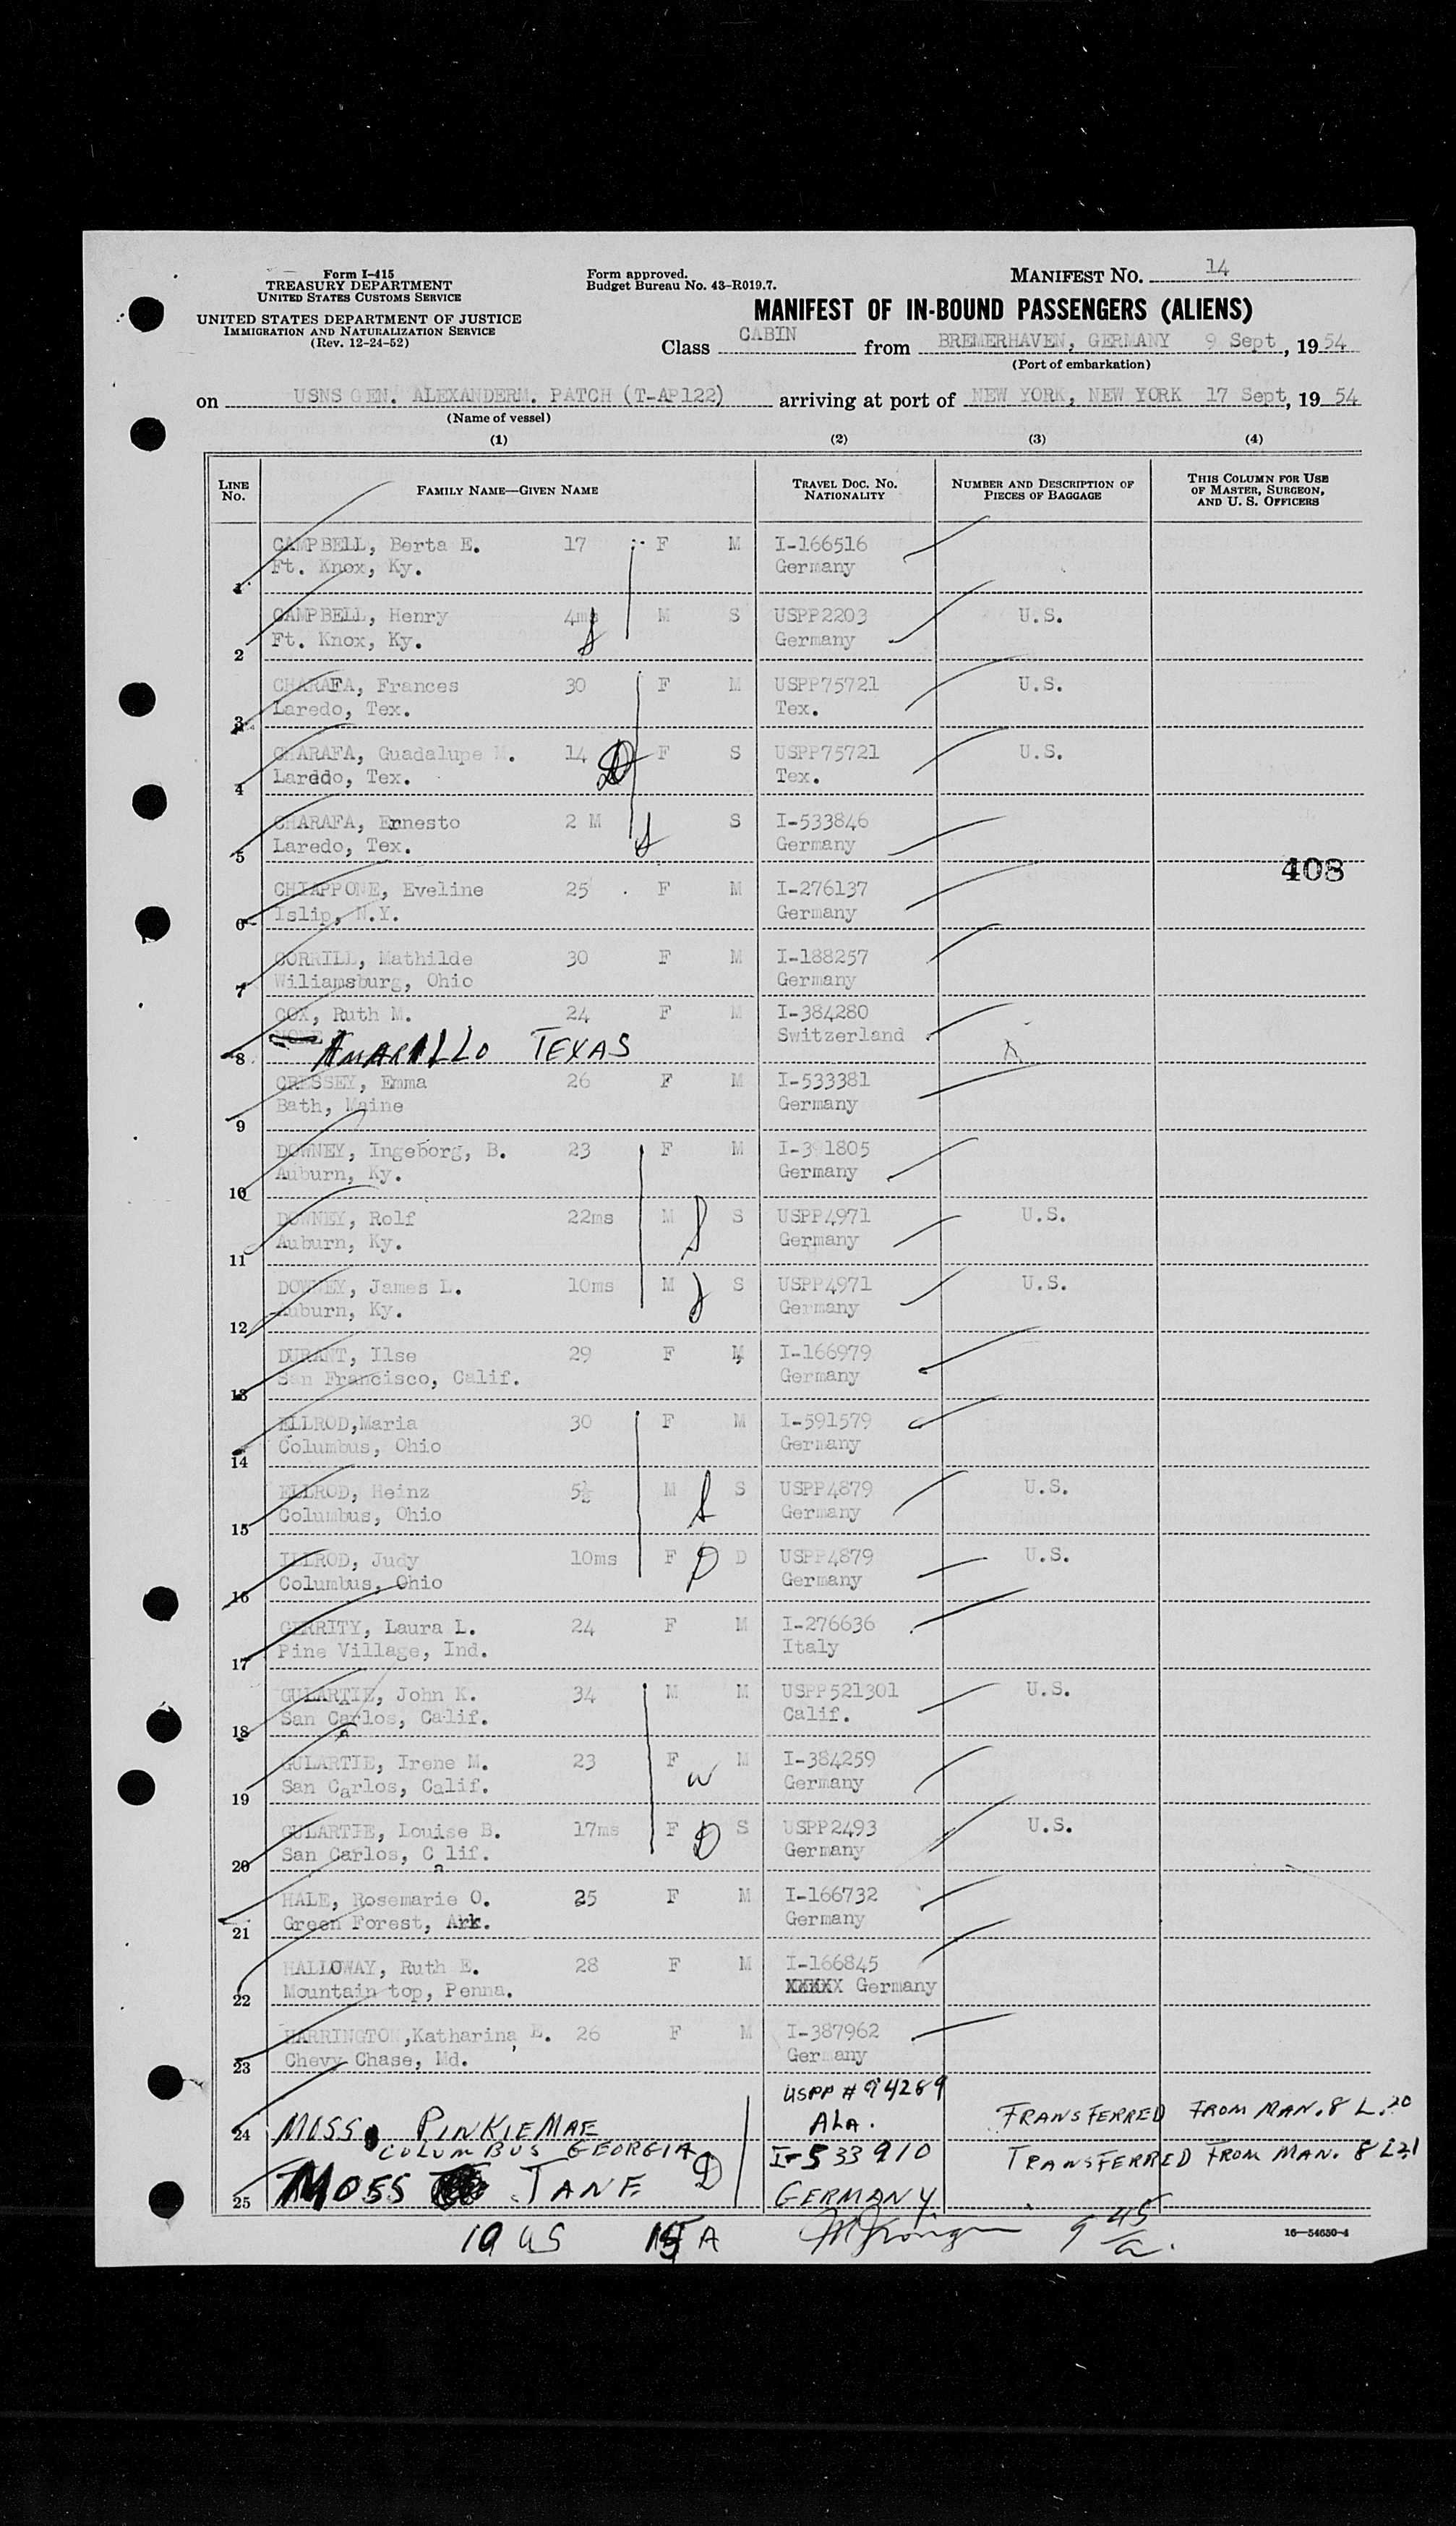 Form I-415
TREASURY DEPARTMENT
UNITED STATES CUSTOMS SERVICE
UNITED STATES DEPARTMENT OF JUSTICE
IMMIGRATION AND NATURALIZATION SERVICE
(Rev. 12-24-52)
Form approved.
Budget Bureau No. 43-R019.7.
MANIFEST NO. 14
MANIFEST OF IN-BOUND PASSENGERS (ALIENS)
Class CABIN from BREMERHAVEN, GERMANY 9 Sept, 1954
(Port of embarkation)
on USNS GEN. ALEXANDERM. PATCH (T-AP122) arriving at port of NEW YORK, NEW YORK 17 Sept, 1954
(Name of vessel)
(1) (2) (3) (4)
LINE NO. FAMILY NAME—GIVEN NAME TRAVEL DOC. NO. NATIONALITY NUMBER AND DESCRIPTION OF PIECES OF BAGGAGE THIS COLUMN FOR USE OF MASTER, SURGEON, AND U. S. OFFICERS
CAMPBELL, Berta E. 17 F M I-166516
1 Ft. Knox, Ky. Germany
CAMPBELL, Henry 4ms M S USPP2203 U.S.
2 Ft. Knox, Ky. Germany
CHARAFA, Frances 30 F M USPP75721 U.S.
3 Laredo, Tex. Tex.
CHARAFA, Guadalupe M. 14 F S USPP75721 U.S.
4 Lareddo, Tex. Tex.
CHARAFA, Ernesto 2 M S I-533846
5 Laredo, Tex. Germany
408
CHIAPPONE, Eveline 25 F M I-276137
6 Islip, N.Y. Germany
CORRILL, Mathilde 30 F M I-188257
7 Wiliamsburg, Ohio Germany
COX, Ruth M. 24 F M I-384280
8 NONE AMARILLO TEXAS Switzerland
CRESSEY, Emma 26 F M I-533381
9 Bath, Maine Germany
DOWNEY, Ingeborg, B. 23 F M I-3 1805
10 Auburn, Ky. Germany
DOWNEY, Rolf 22ms M S USPP4971 U.S.
11 Auburn, Ky. Germany
DOWNEY, James L. 10ms M S USPP4971 U.S.
12 Auburn, Ky. Germany
DURANT, Ilse 29 F M I-166979
13 San Francisco, Calif. Germany
ELLROD,Maria 30 F M I-591579
14 Columbus, Ohio Germany
ELLROD, Heinz 5½ M S USPP4879 U.S.
15 Columbus, Ohio Germany
ILLROD, Judy 10ms F D D USPP4879 U.S.
16 Columbus, Ohio Germany
GERRITY, Laura L. 24 F M I-276636
17 Pine Village, Ind. Italy
GULARTIE, John K. 34 M M USPP521301 U.S.
18 San Carlos, Calif. Calif.
GULARTIE, Irene M. 23 F W M I-384259
19 San Carlos, Calif. Germany
GULARTIE, Louise B. 17ms F D S USPP2493 U.S.
20 San Carlos, Calif. Germany
HALE, Rosemarie O. 25 F M I-166732
21 Green Forest, Ark. Germany
HALLOWAY, Ruth E. 28 F M I-166845
22 Mountain top, Penna. XXXXX Germany
HARRINGTON,Katharina, E. 26 F M I-387962
23 Chevy Chase, Md. Germany
USPP # 94269
24 MOSS, PINKIE MAE ALA. TRANSFERRED FROM MAN. 8 L. 20
COLUMBUS GEORGIA D I-533910 TRANSFERRED FROM MAN. 8 L21
25 MOSS JANE GERMANY
10 US 15 A 9 45/a.
16—54650-4